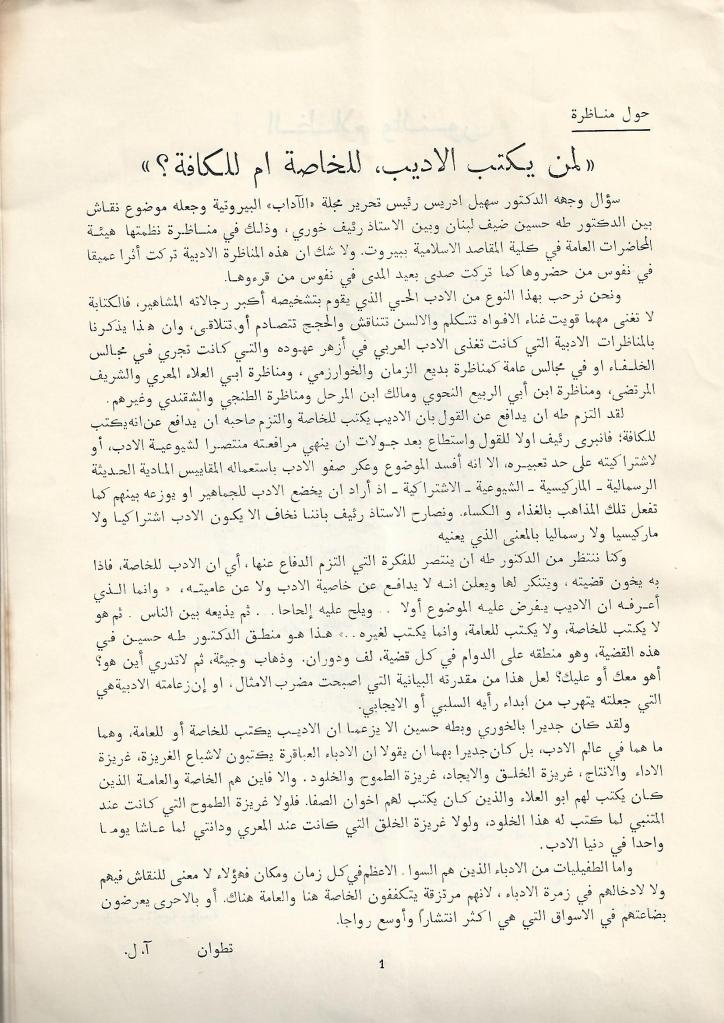 حول مناظرة
«لمن يكتب الاديب، للخاصة ام للكافة؟»
سؤال وجهه الدكتور سهيل ادريس رئيس تحرير مجلة «الآداب» البيروتية وجعله موضوع نقاش
بين الدكتور طه حسين ضيف لبنان وبين الاستاذ رئيف خوري، وذلك في مناظرة نظمتها هيئة
المحاضرات العامة في كلية المقاصد الاسلامية ببيروت. ولا شك ان هذه المناظرة الادبية تركت أثرا عميقا
في نفوس من حضروها كما تركت صدى بعيد المدى في نفوس من قرءوها.
ونحن نرحب بهذا النوع من الادب الحي الذي يقوم بتشخيصه أكبر رجالاته المشاهير، فالكتابة
لا تغنى مهما قويت غناء الافواه تتكلم والالسن تتناقش والحجج تتصادم أو تتلاقى، وان هذا يذكرنا
بالمناظرات الادبية التي كانت تغذى الادب العربي في أزهر عهوده والتي كانت تجري في مجالس
الخلفاء او في مجالس عامة كمناظرة بديع الزمان والخوارزمي، ومناظرة ابي العلاء المعري والشريف
المرتضى، ومناظرة ابن أبي الربيع النحوي ومالك ابن المرحل ومناظرة الطنجي والشقندي وغيرهم.
لقد التزم طه ان يدافع عن القول بان الاديب يكتب للخاصة والتزم صاحبه ان يدافع عن انه يكتب
للكافة؛ فانبرى رئيف اولا للقول واستطاع بعد جولات ان ينهي مرافعته منتصرا لشيوعية الادب، أو
لاشتراكيته على حد تعبيره، الا انه أفسد الموضوع وعكر صفو الادب باستعماله المقاييس المادية الحديثة
الرسمالية ـ الماركيسية ـ الشيوعية ـ الاشتراكية ـ اذ أراد ان يخضع الادب للجماهير او يوزعه بينهم كما
تفعل تلك المذاهب بالغذاء و الكساء. ونصارح الاستاذ رئيف باننا نخاف الا يكون الادب اشتراكيا ولا
ماركيسيا ولا رسماليا بالمعنى الذي يعنيه
وكنا ننتظر من الدكتور طه ان ينتصر للفكرة التي التزم الدفاع عنها، أي ان الادب للخاصة، فاذا
به يخون قضيته، ويتنكر لها ويعلن انه لا يدافع عن خاصية الادب ولا عن عاميته، « وانما الذي
أعرفه ان الاديب يفرض عليه الموضوع أولا . . ويلح عليه إلحاحا. . . ثم يذيعه بين الناس . ثم هو
لا يكتب للخاصة، ولا يكتب للعامة، وانما يكتب لغيره ..» هذا هو منطق الدكتور طه حسين في
هذه القضية، وهو منطقه على الدوام في كل قضية، لف ودوران. وذهاب وجيئة، ثم لاتدري أين هو؟
أهو معك أو عليك؟ لعل هذا من مقدرته البيانية التي اصبحت مضرب الامثال، او إن زعامته الادبية هي
التي جعلته يتهرب من ابداء رأيه السلبي أو الايجابي.
ولقد كان جديرا بالخوري وبطه حسين الا يزعما ان الاديب يكتب للخاصة أو للعامة، وهما
ما هما في عالم الادب، بل كان جديرا بهما ان يقولا ان الادباء العباقرة يكتبون لاشباع الغريزة، غريزة
الاداء والانتاج، غريزة الخلق والايجاد، غريزة الطموح والخلود . والا فاين هم الخاصة والعامة الذين
كان يكتب لهم ابو العلاء والذين كان يكتب لهم اخوان الصفا. فلولا غريزة الطموح التي كانت عند
المتنبي لما كتب له هذا الخلود، ولولا غريزة الخلق التي كانت عند المعري ودانتي لما عاشا يوما
واحدا في دنيا الادب.
واما الطفيليات من الادباء الذين هم السوا. الاعظم في كل زمان ومكان فهؤلاء لا معنى للنقاش فيهم
ولا لادخالهم في زمرة الادباء، لانهم مرتزقة يتكففون الخاصة هنا والعامة هناك. أو بالاحرى يعرضون
بضاعتهم في الاسواق التي هي اكثر انتشاراً وأوسع رواجا.
تطوان آ. ل.
1